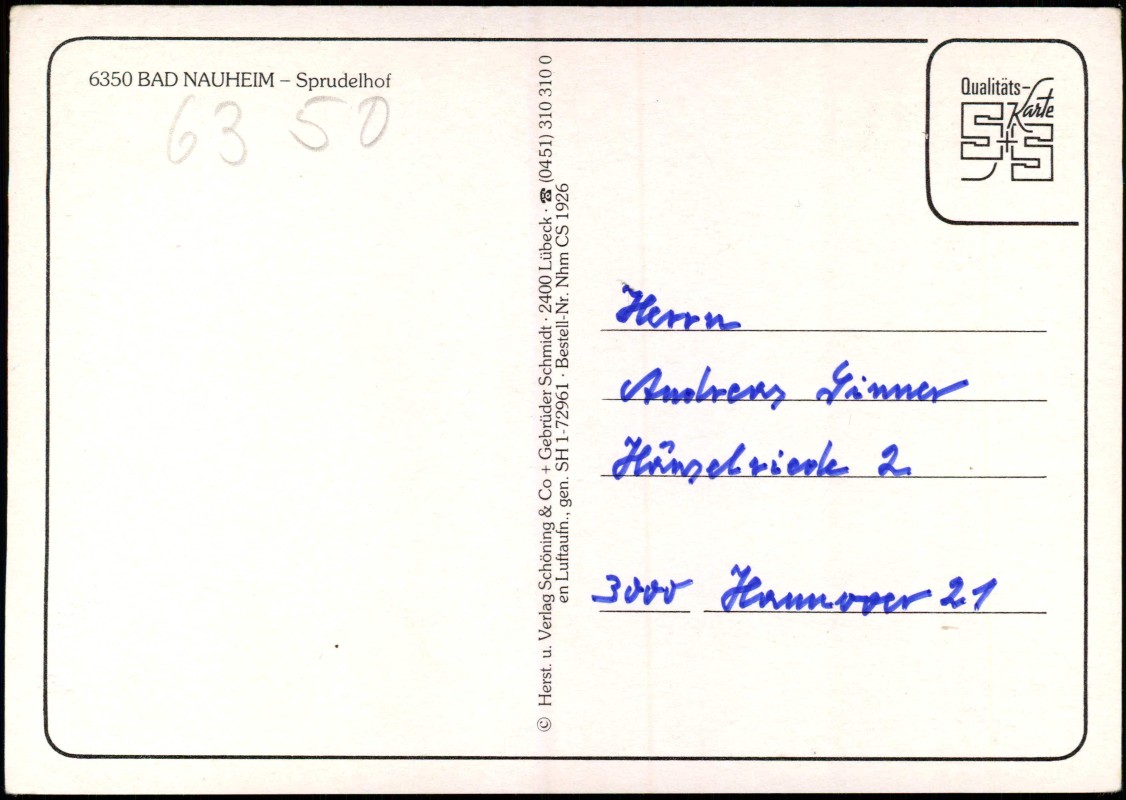 6350 BAD NAUHEIM – Sprudelhof
63 50
© Herst. u. Verlag Schöning & Co + Gebrüder Schmidt · 2400 Lübeck · ☎ (0451) 310 310 0
en Luftaufn., gen. SH 1-72961 · Bestell-Nr. Nhm CS 1926
Qualitäts-
Karte
S+S
Herrn
Andreas
2
3000 Hannover 21